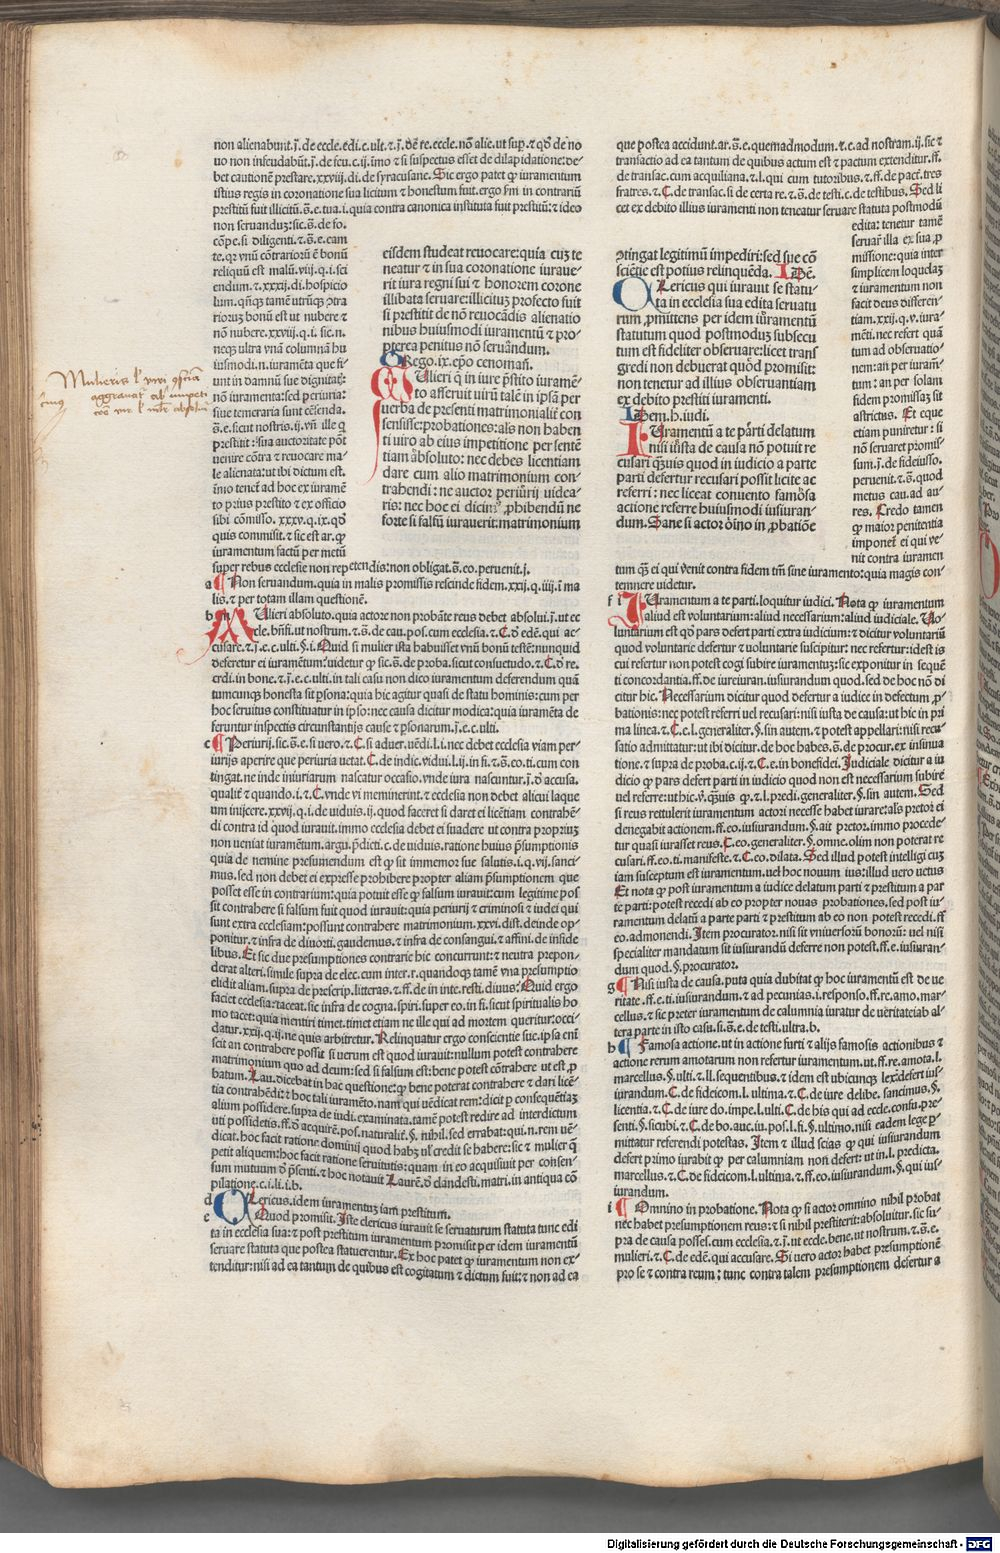 non alienabunt.j̄.de eccle.edi.c.ult.⁊.j̄.de re.eccle.nō alie.ut sup.⁊ qđ de no
uo non infeudabūt.j̄.de feu.c.ij.īmo ⁊ si suspectus esset de dilapidatione:de-
bet cautionē prestare.xxviij.di.de syracusane. Sic ergo patet ꝙ iuramentum
istius regis in coronatione sua licitum ⁊ honestum fuit.ergo sm̄ in contrariū
prestitū fuit illicitū.s̄.e.tua.i.quia contra canonica instituta fuit prestitū:⁊ ideo
non seruanduz:sic.s̄.de fo.
cōpe.si diligenti.⁊.s̄.e.eam
te.qr vnū cōtrariorū ē bonū
reliquū est malū.viij.q.i.sci
endum.⁊.xxxij.di.hospicio
lum.qn̄qꝫ tamē utrūqꝫ ↄtra
rioruz bonū est ut nubere ⁊
nō nubere.xxviij.q.i.sic.n.
neqꝫ ultra vnā columnā hu
iusmodi.n.iuramēta que fi-
unt in damnū sue dignitatꝭ:
nō iuramenta:sed periuria:
siue temeraria sunt cēsenda.
s̄.e.sicut nostris.ij.vn̄ ille q̄
prestitit:sua auctoritate pōt
venire cōtra ⁊ reuocare ma-
le alienata:ut ibi dictum est.
īmo tenet̄ ad hoc ex iuramē
to prius prestito ⁊ ex officio
sibi cōmisso.xxxv.q.ix.qđ
quis commisit.⁊ sic est ar.ꝙ
iuramentum factū per metū
super rebus ecclesie non repetendis:non obligat.s̄.eo.peruenit.j.
a Non seruandum.quia in malis promissis rescinde fidem.xxij.q.iiij.in ma
lis.⁊ per totam illam questionē.
b Mulieri absoluto.quia actore non probāte reus debet absolui.j̄.ut ec
cle.bn̄fi.ut nostrum.⁊.s̄.de cau.pos.cum ecclesia.⁊.C.đ edē.qui ac-
cusare.⁊.j̄.e.c.ulti.§.i. Quid si mulier ista habuisset vnū bonū testē:nunquid
deferetur ei iuramētum:uidetur ꝙ sic.s̄.de proba.sicut consuetudo.⁊.C.đ re.
crdi.in bone.⁊.j̄.e.c.ulti.in tali casu non dico iuramentum deferendum quā
tumcunqꝫ honesta sit psona:quia hic agitur quasi de statu hominis:cum per
hoc seruitus constituatur in ipso:nec causa dicitur modica:quia iuramēta de
feruntur inspectis circumstantijs cause ⁊ psonarum.j̄.e.c.ulti.
c Periurij.sic.s̄.e.si uero.⁊.C.si aduer.uēdi.l.i.nec debet ecclesia viam per-
iurijs aperire que periuria uetat.C.de indic.vidui.l.ij.in fi.⁊.s̄.eo.ti.cum con
tingat.ne inde iniuriarum nascatur occasio.vnde iura nascuntur.j̄.đ accusa.
qualit̄ ⁊ quando.i.⁊.C.vnde vi meminerint.⁊ ecclesia non debet alicui laque
um inijcere.xxvij.q.i.de uiduis.ij.quod faceret si daret ei licētiam contrahē-
di contra id quod iurauit.immo ecclesia debet ei suadere ut contra propriuz
non ueniat iuramētum.argu.p̄dicti.c.de uiduis.ratione huius p̄sumptionis
quia de nemine presumendum est ꝙ sit immemor sue salutis.i.q.vij.sanci-
mus.sed non debet ei expresse prohibere propter aliam p̄sumptionem que
posset esse in contrarium:quia potuit esse ꝙ falsum iurauit:cum legitime pos
sit contrahere si falsum fuit quod iurauit:quia periurij ⁊ criminosi ⁊ iudei qui
sunt extra ecclesiam:possunt contrahere matrimonium.xxvi.dist.deinde op-
ponitur.⁊ infra de diuorti.gaudemus.⁊ infra de consangui.⁊ affini.de infide
libus. Et sic due presumptiones contrarie hic concurrunt:⁊ neutra prepon-
derat alteri.simile supra de elec.cum inter.r.quandoqꝫ tamē vna presumptio
elidit aliam.supra de prescrip.litteras.⁊.ff.de in inte.resti.diuus: Quid ergo
faciet ecclesia:taceat.sic infra de cogna.spiri.super eo.in fi.sicut spiritualis ho
mo tacet:quia mentiri timet.timet etiam ne ille qui ad mortem queritur:occi
datur.xxij.q.ij.ne quis arbitretur. Relinquatur ergo conscientie sue.ipsa enī
scit an contrahere possit si uerum est quod iurauit:nullum potest contrahere
matrimonium quo ad deum:sed si falsum est:bene potest cōtrahere ut est ꝓ
batum. Lau.dicebat in hac questione:ꝙ bene poterat contrahere ⁊ dari licē-
tia contrahēdi:⁊ hoc tali iuramēto.nam qui vēdicat rem:dicit ꝑ consequētiaz
alium possidere.supra de iudi.examinata.tamē potest redire ad interdictum
uti possidetis.ff.đ acquirē.pos.naturalit̄.§.nihil.sed errabat:qui.n.rem uē-
dicat.hoc facit ratione dominij quod habꝫ uł credit se habere:sic ⁊ mulier q̄
petit aliquem:hoc facit ratione seruitutis:quam in eo acquisiuit per consen-
sum mutuum đ p̄senti.⁊ hoc notauit Laurē.đ clandesti.matri.in antiqua cō
pilatione.c.i.li.i.b.
d Clericus.idem iuramentuz iam prestitum.
e Quod promisit. Iste clericus iurauit se seruaturum statuta tunc edi
ta in ecclesia sua:⁊ post prestitum iuramentum promisit per idem iuramentū
seruare statuta que postea statuerentur. Ex hoc patet ꝙ iuramentum non ex-
tenditur:nisi ad ea tantum de quibus est cogitatum ⁊ dictum fuit:⁊ non ad ea
eisdem studeat reuocare:quia cuz te
neatur ⁊ in sua coronatione iuraue-
rit iura regni sui ⁊ honorem corone
illibata seruare:illicituz profecto fuit
si prestitit de nō reuocādis alienatio
nibus huiusmodi iuramentū ⁊ pro-
pterea penitus nō seruāndum.
GRego.ix.epō cenomañ.
MUlieri q̄ in iure p̄stito iuramē-
to asseruit uirū talē in ipsā per
uerba de presenti matrimonialit̄ con
sensisse:probationes:als non haben
ti uiro ab eius impetitione per sentē
tiam absoluto:nec debes licentiam
dare cum alio matrimonium con-
trahendi:ne auctor periurij uidea-
ris:nec hoc ei dicimꝰ ꝓhibendū ne
forte si falsū iurauerit:matrimonium
que postea accidunt.ar.s̄.e.quemadmodum.⁊.c.ad nostram.ij.sic ⁊
transactio ad ea tantum de quibus actum est ⁊ pactum extenditur.ff.
de transac.cum acquiliana.⁊.l.qui cum tutoribus.⁊.ff.de pact̄.tres
fratres.⁊.C.de transac.si de certa re.⁊.s̄.de testi.c.de testibus. Sed li
cet ex debito illius iuramenti non teneatur seruare statuta postmodū
edita:tenetur tamē
seruar̄ illa ex sua ꝓ
missione:quia inter
simplicem loquelaz
⁊ iuramentum non
facit deus differen-
tiam.xxij.q.v.iura-
mēti.nec refert quā
tum ad obseruatio-
nem:an per iuram̄-
tum:an per solam
fidem promissaz sit
astrictus. Et eque
etiam puniretur:si
nō seruaret promis-
sum.j̄.de fideiusso.
peruenit.⁊.s̄.quod
metus cau.ad au-
res. Credo tamen
ꝙ maior penitentia
imponet̄ ei qui ve-
nit contra iuramen
tum q̄ ei qui venit contra fidem tm̄ sine iuramento:quia magis con-
temnere uidetur.
ↄtingat legitimū impediri:sed sue cō
sciētie est potius relinquēda. IDē.
CLericus qui iurauit se statu-
ta in ecclesia sua edita seruatu
rum ꝓmittens per idem iuramentum
statutum quod postmoduz subsecu
tum est fideliter obseruare:licet trans
gredi non debuerat quōd promisit:
non tenetur ad illius obseruantiam
ex debito prestiti iuramenti.
IDem.h.iudi.
IUramentū a te ꝑarti delatum
nisi iusta de causa nō potuit re
cusari q̄zuis quod in iudicio a parte
parti defertur recusari possit licite ac
referri:nec liceat conuento famōsa
actione referre huiusmodi iusiuran-
dum. Sane si actor oīno in ꝓbatiōe
f i IUramentum a te parti.loquitur iudici. Nota ꝙ iuramentum
aliud est voluntarium:aliud necessarium:aliud iudiciale. Uo-
luntarium est qđ pars defert parti extra iudicium:⁊ dicitur voluntariū
quod voluntarie defertur ⁊ voluntarie suscipitur:nec refertur:idest is
cui refertur non potest cogi subire iuramentuz:sic exponitur in sequē
ti concordantia.ff.de iureiuran.iusiurandum quod.sed de hoc nō di
citur hic. Necessarium dicitur quod defertur a iudice in defectum ꝓ-
bationis:nec potest referri uel recusari:nisi iusta de causa:ut hic in pri
ma linea.⁊.C.e.l.generaliter.§.sin autem.⁊ potest appellari:nisi recu-
satio admittatur:ut ibi dicitur.de hoc habes.s̄.de procur.ex insinua
tione.⁊ supra de proba.c.ij.⁊.C.e.in bonefidei. Iudiciale dicitur a iu
dicio ꝙ pars defert parti in iudicio quod non est necessarium subire
uel referre:ut hic.v̄.q̄zuis ꝙ.⁊.l.predi.generaliter.§.sin autem. Sed
si reus retulerit iuramentum actori necesse habet iurare:als pretor ei
denegabit actionem.ff.eo.iusiurandum.§.ait pretor.immo procede-
tur quasi iurasset reus.C.eo.generaliter.§.omne.olim non poterat re
cusari.ff.eo.ti.manifeste.⁊.C.eo.dilata. Sed illud potest intelligi cuz
iam susceptum est iuramentum.uel hoc nouum ius:illud uero uetus
Et nota ꝙ post iuramentum a iudice delatum parti ⁊ prestitum a par
te parti:potest recedi ab eo propter nouas probationes.sed post iu-
ramentum delatū a parte parti ⁊ prestitum ab eo non potest recedi.ff
eo.admonendi. Item procurator.nisi sit vniuersorū bonorū:uel nisi
specialiter mandatum sit iusiurandū deferre non potest.ff.e.iusiuran-
dum quod.§.procurator.
g Nisi iusta de causa.puta quia dubitat ꝙ hoc iuramentū est de ue
ritate.ff.e.ti.iusiurandum.⁊ ad pecunias.i.responso.ff.re.amo.mar-
cellus.⁊ sic preter iuramentum de calumnia iuratur de ueritate:ab al-
tera parte in isto casu.si.s̄.e.de testi.ultra.b.
h Famosa actione.ut in actione furti ⁊ alijs famosis actionibus ⁊
actione rerum amotarum non refertur iuramentum.ut.ff.re.amota.l.
marcellus.§.ulti.⁊.ll.sequentibus.⁊ idem est ubicunqꝫ lex defert ius-
iurandum.C.de fideicom.l.ultima.⁊.C.de iure delibe.sancimus.§.
licentia.⁊.C.de iure do.impe.l.ulti.C.de his qui ad eccle.confu.pre-
senti.§.sicubi.⁊.C.de bo.auc.iu.pos.l.fi.§.ultimo.nisi eadem lege ꝑ-
mittatur referendi potestas. Item ⁊ illud scias ꝙ qui iusiurandum
defert primo iurabit ꝙ per calumniam non defert:ut in.l.predicta.
marcellus.⁊.C.de fideicom.l.ultima.⁊.ff.eo.iusiurandum.§.qui ius-
iurandum.
i Omnino in probatione. Nota ꝙ si actor omnino nihil probat
nec habet presumptionem reus:⁊ si nihil prestiterit:absoluitur.sic su-
pra de causa posses.cum ecclesia.⁊.j̄.ut eccle.bene.ut nostrum.⁊.s̄.e.
mulieri.⁊.C.de edē.qui accusare. Si uero actor habet presumptionē
pro se ⁊ contra reum:tunc contra talem presumptionem defertur a
Digitalisierung gefördert durch die Deutsche Forschungsgemeinschaft - DFG